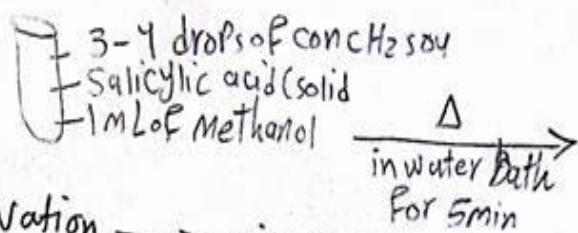 3-4 drops of conc H2SO4
Salicylic acid (solid
1mL of Methanol
Δ
in water Bath
for 5min
vation